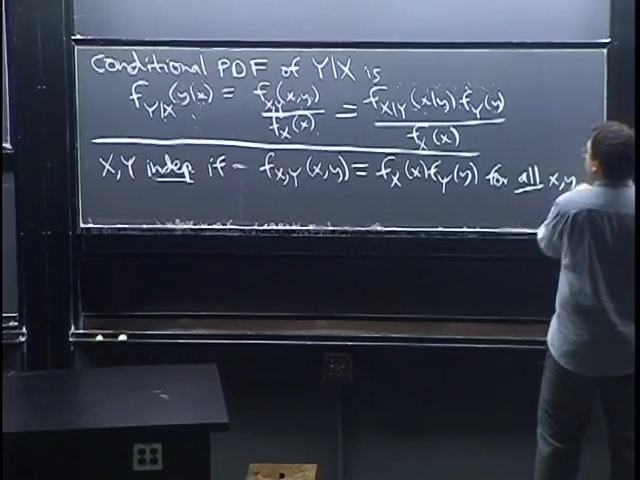 Conditional PDF of Y|X is
f_{Y|X}(y|x) = f_{X,Y}(x,y) / f_X(x) = f_{X|Y}(x|y) f_Y(y) / f_X(x)
X,Y indep if - f_{X,Y}(x,y) = f_X(x) f_Y(y) for all x,y